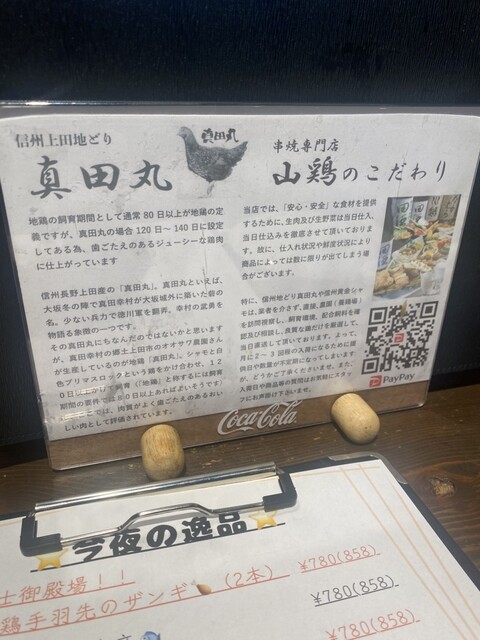 信州上田地どり
真田丸
真田丸
地鶏の飼育期間として通常80日以上が地鶏の定
義ですが、真田丸の場合120日〜140日に設定
してある為、歯ごたえのあるジューシーな鶏肉
に仕上がっています
信州長野上田産の「真田丸」。真田丸といえば、
大坂冬の陣で真田幸村が大坂城外に築いた砦の
名。少ない兵力で徳川軍を翻弄、幸村の武勇を
物語る象徴の一つです。
その真田丸にちなんだのではないかと思います
が、真田幸村の郷土上田市のオオサワ農園さん
が生産しているのが地鶏「真田丸」。シャモと白
色プリマスロックという鶏をかけ合わせ、12
期間の要件では80日以上あればよいそうです)
しい肉として評価されています。
串焼専門店
山鶏のこだわり
当店では、「安心・安全」な食材を提供
するために、生肉及び生野菜は当日仕入、
当日仕込みを徹底させて頂いておりま
す。故に、仕入れ状況や鮮度状況により
商品によっては数に限りが出てしまう場
合がございます。
特に、信州地どり真田丸や信州黄金シャ
モは、業者を介さず、直接、農園(養鶏場)
を訪問視察し、飼育環境、配合飼料を確
認及び相談し、良質な鶏だけを厳選して、
当日直送して頂いております。よって、
週に2〜3回程の入荷になるため提
供日や数量が不定期になってしまいます
が、どうかご了承くださいませ。また、
入荷日や商品等の質問はお気軽にスタッ
フにお声掛け下さいませ。
PayPay
Coca-Cola
今夜の逸品
士御殿場！！
鶏手羽先のザンギ (2本)
¥780(858)
¥780(858)
¥780(858)